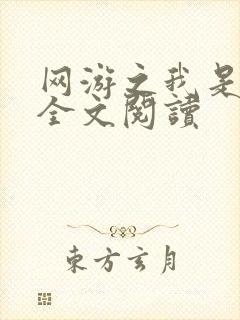 网游之我是
全文閱讀
東方玄月